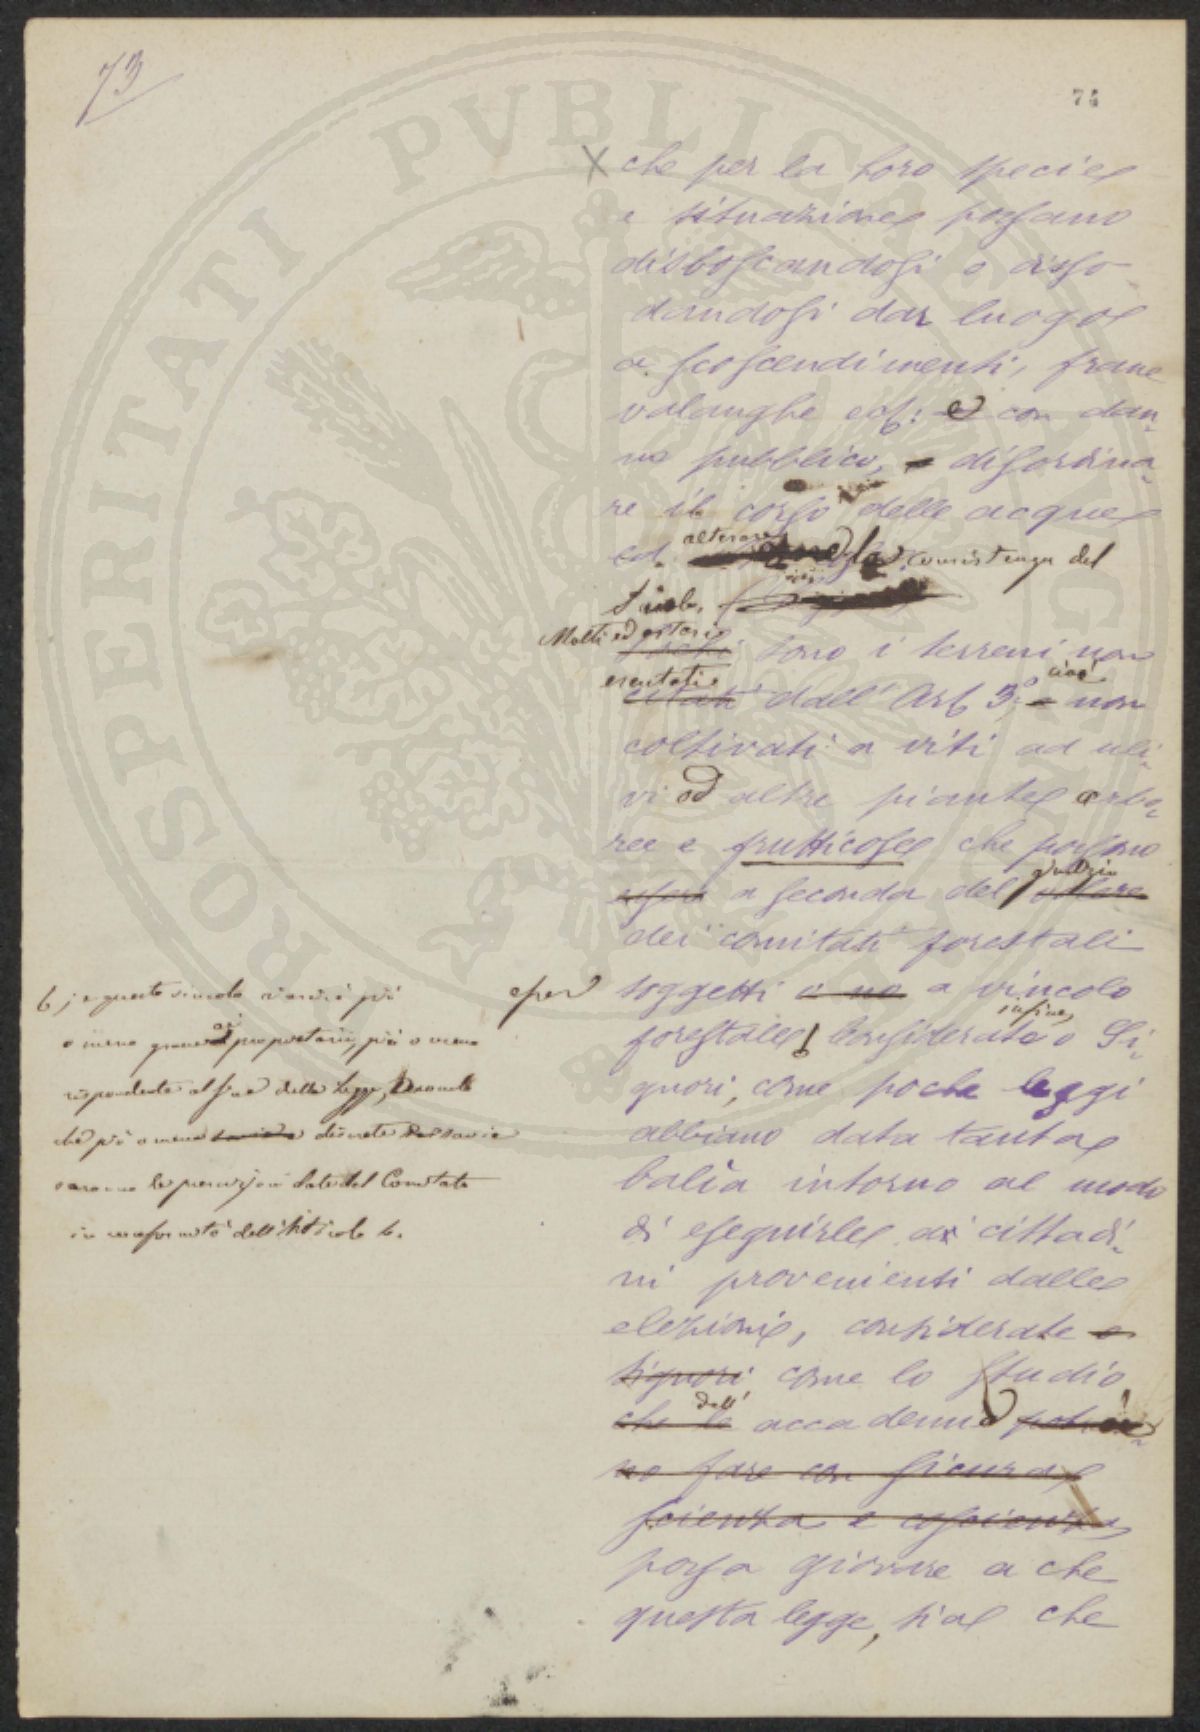 73
74
PROSPERITATI PVBLICAE
X che per la loro specie
e situazione possano
disboscandosi o disso
dandosi dar luogo
a scoscendimenti, frane
valanghe ecc: e con dan-
no pubblico, disordina-
re il corso delle acque
ed alterare la consistenza del
suolo.
Molti ed estesi
pochi sono i terreni non
esentati
citati dall'Art 3°; cioè non
coltivati a viti ad uli-
vi od altre piante arbo-
ree e fruttifose che possano
essere a seconda del giudizio valore
dei comitati forestali
soggetti o no a vincolo
forestale! Considerate infine, o Si-
gnori, come poche leggi
abbiano data tanta
balìa intorno al modo
di eseguirle ai cittadi-
ni provenienti dalle
elezioni, considerate o
signori come lo studio
che le dell' accademie
no fare con sicura
scienza e coscienza
possa giovare a che
questa legge, sia che
b; e questo vincolo riuscirà più
o meno grave ai proprietarii, più o meno
rispondente al fine della legge, secondo
che più o meno discrete
saranno le prescrizioni date dal Comitato
in conformità dell'Articolo 6.